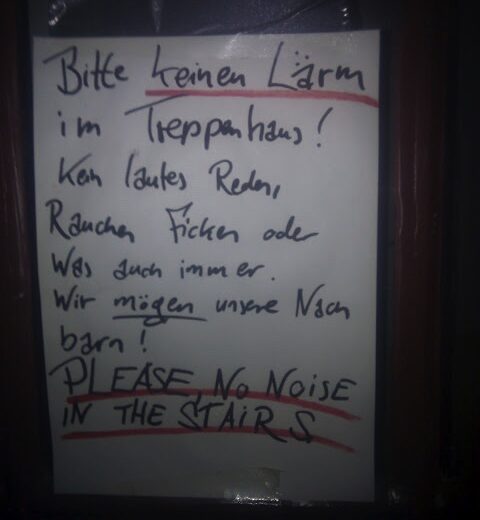 Bitte keinen Lärm
im Treppenhaus!
Kein lautes Reden,
Rauchen Ficken oder
Was auch immer.
Wir mögen unsere Nach
barn!
PLEASE, NO NOISE
IN THE STAIRS